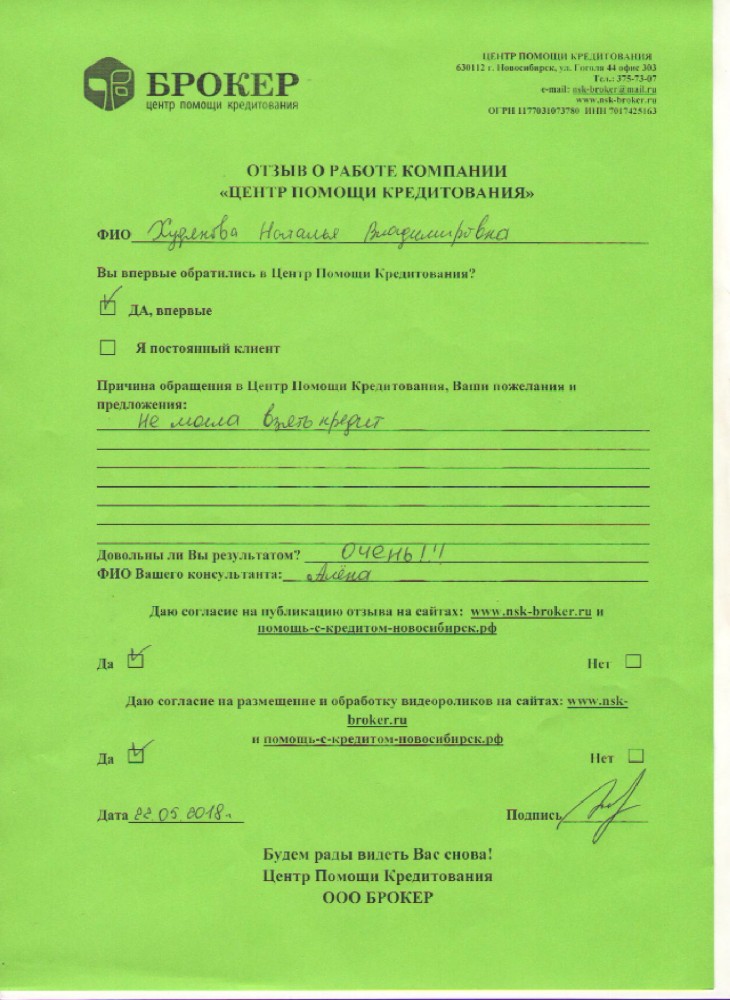 БРОКЕР
центр помощи кредитования
ЦЕНТР ПОМОЩИ КРЕДИТОВАНИЯ
630112 г. Новосибирск, ул. Гоголя 44 офис 303
Тел.: 375-73-07
e-mail: nsk-broker@mail.ru
www.nsk-broker.ru
ОГРН 1177031073780 ИНН 7017425163
ОТЗЫВ О РАБОТЕ КОМПАНИИ
«ЦЕНТР ПОМОЩИ КРЕДИТОВАНИЯ»
ФИО Худякова Наталья Владимировна
Вы впервые обратились в Центр Помощи Кредитования?
ДА, впервые
Я постоянный клиент
Причина обращения в Центр Помощи Кредитования, Ваши пожелания и
предложения:
Не могла взять кредит
Довольны ли Вы результатом? ОЧЕНЬ!!!
ФИО Вашего консультанта: Алёна
Даю согласие на публикацию отзыва на сайтах: www.nsk-broker.ru и
помощь-с-кредитом-новосибирск.рф
Да Нет
Даю согласие на размещение и обработку видеороликов на сайтах: www.nsk-
broker.ru
и помощь-с-кредитом-новосибирск.рф
Да Нет
Дата 22 05 2018г Подпись
Будем рады видеть Вас снова!
Центр Помощи Кредитования
ООО БРОКЕР